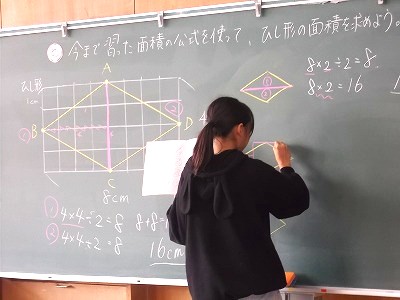 今まで習った面積の公式を使って、ひし形の面積を求めよう。
ひし形
1cm
A
B
D
C
8cm
②
4
① 4×4÷2=8 8+8=1
② 4×4÷2=8
16cm
8×2÷2=8
8×2=16